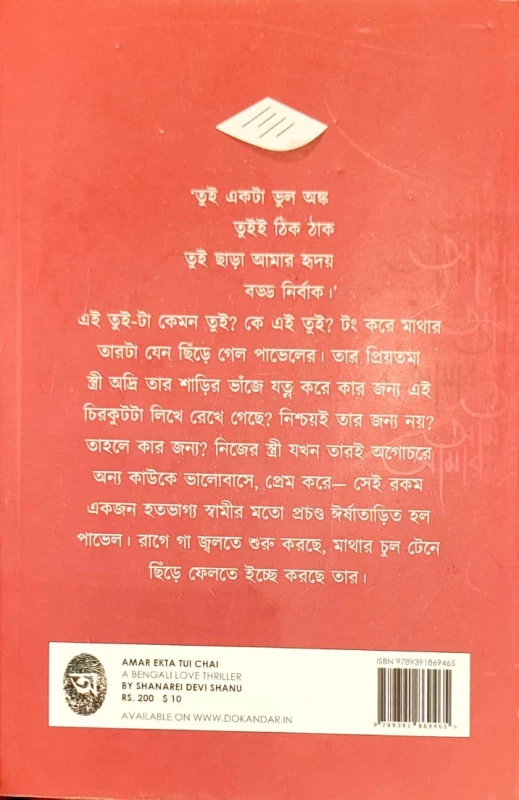 ‘তুই একটা ভুল অঙ্ক
তুইই ঠিক ঠাক
তুই ছাড়া আমার হৃদয়
বড্ড নির্বাক।’
এই তুই-টা কেমন তুই? কে এই তুই? টং করে মাথার
তারটা যেন ছিঁড়ে গেল পাভেলের। তার প্রিয়তমা
স্ত্রী অদ্রি তার শাড়ির ভাঁজে যত্ন করে কার জন্য এই
চিরকুটটা লিখে রেখে গেছে? নিশ্চয়ই তার জন্য নয়?
তাহলে কার জন্য? নিজের স্ত্রী যখন তারই অগোচরে
অন্য কাউকে ভালোবাসে, প্রেম করে— সেই রকম
একজন হতভাগ্য স্বামীর মতো প্রচণ্ড ঈর্ষাতাড়িত হল
পাভেল। রাগে গা জ্বলতে শুরু করছে, মাথার চুল টেনে
ছিঁড়ে ফেলতে ইচ্ছে করছে তার।
অ
AMAR EKTA TUI CHAI
A BENGALI LOVE THRILLER
BY SHANAREI DEVI SHANU
RS. 200 $ 10
AVAILABLE ON WWW.DOKANDAR.IN
ISBN 9789391869465
9 789391 869465 >